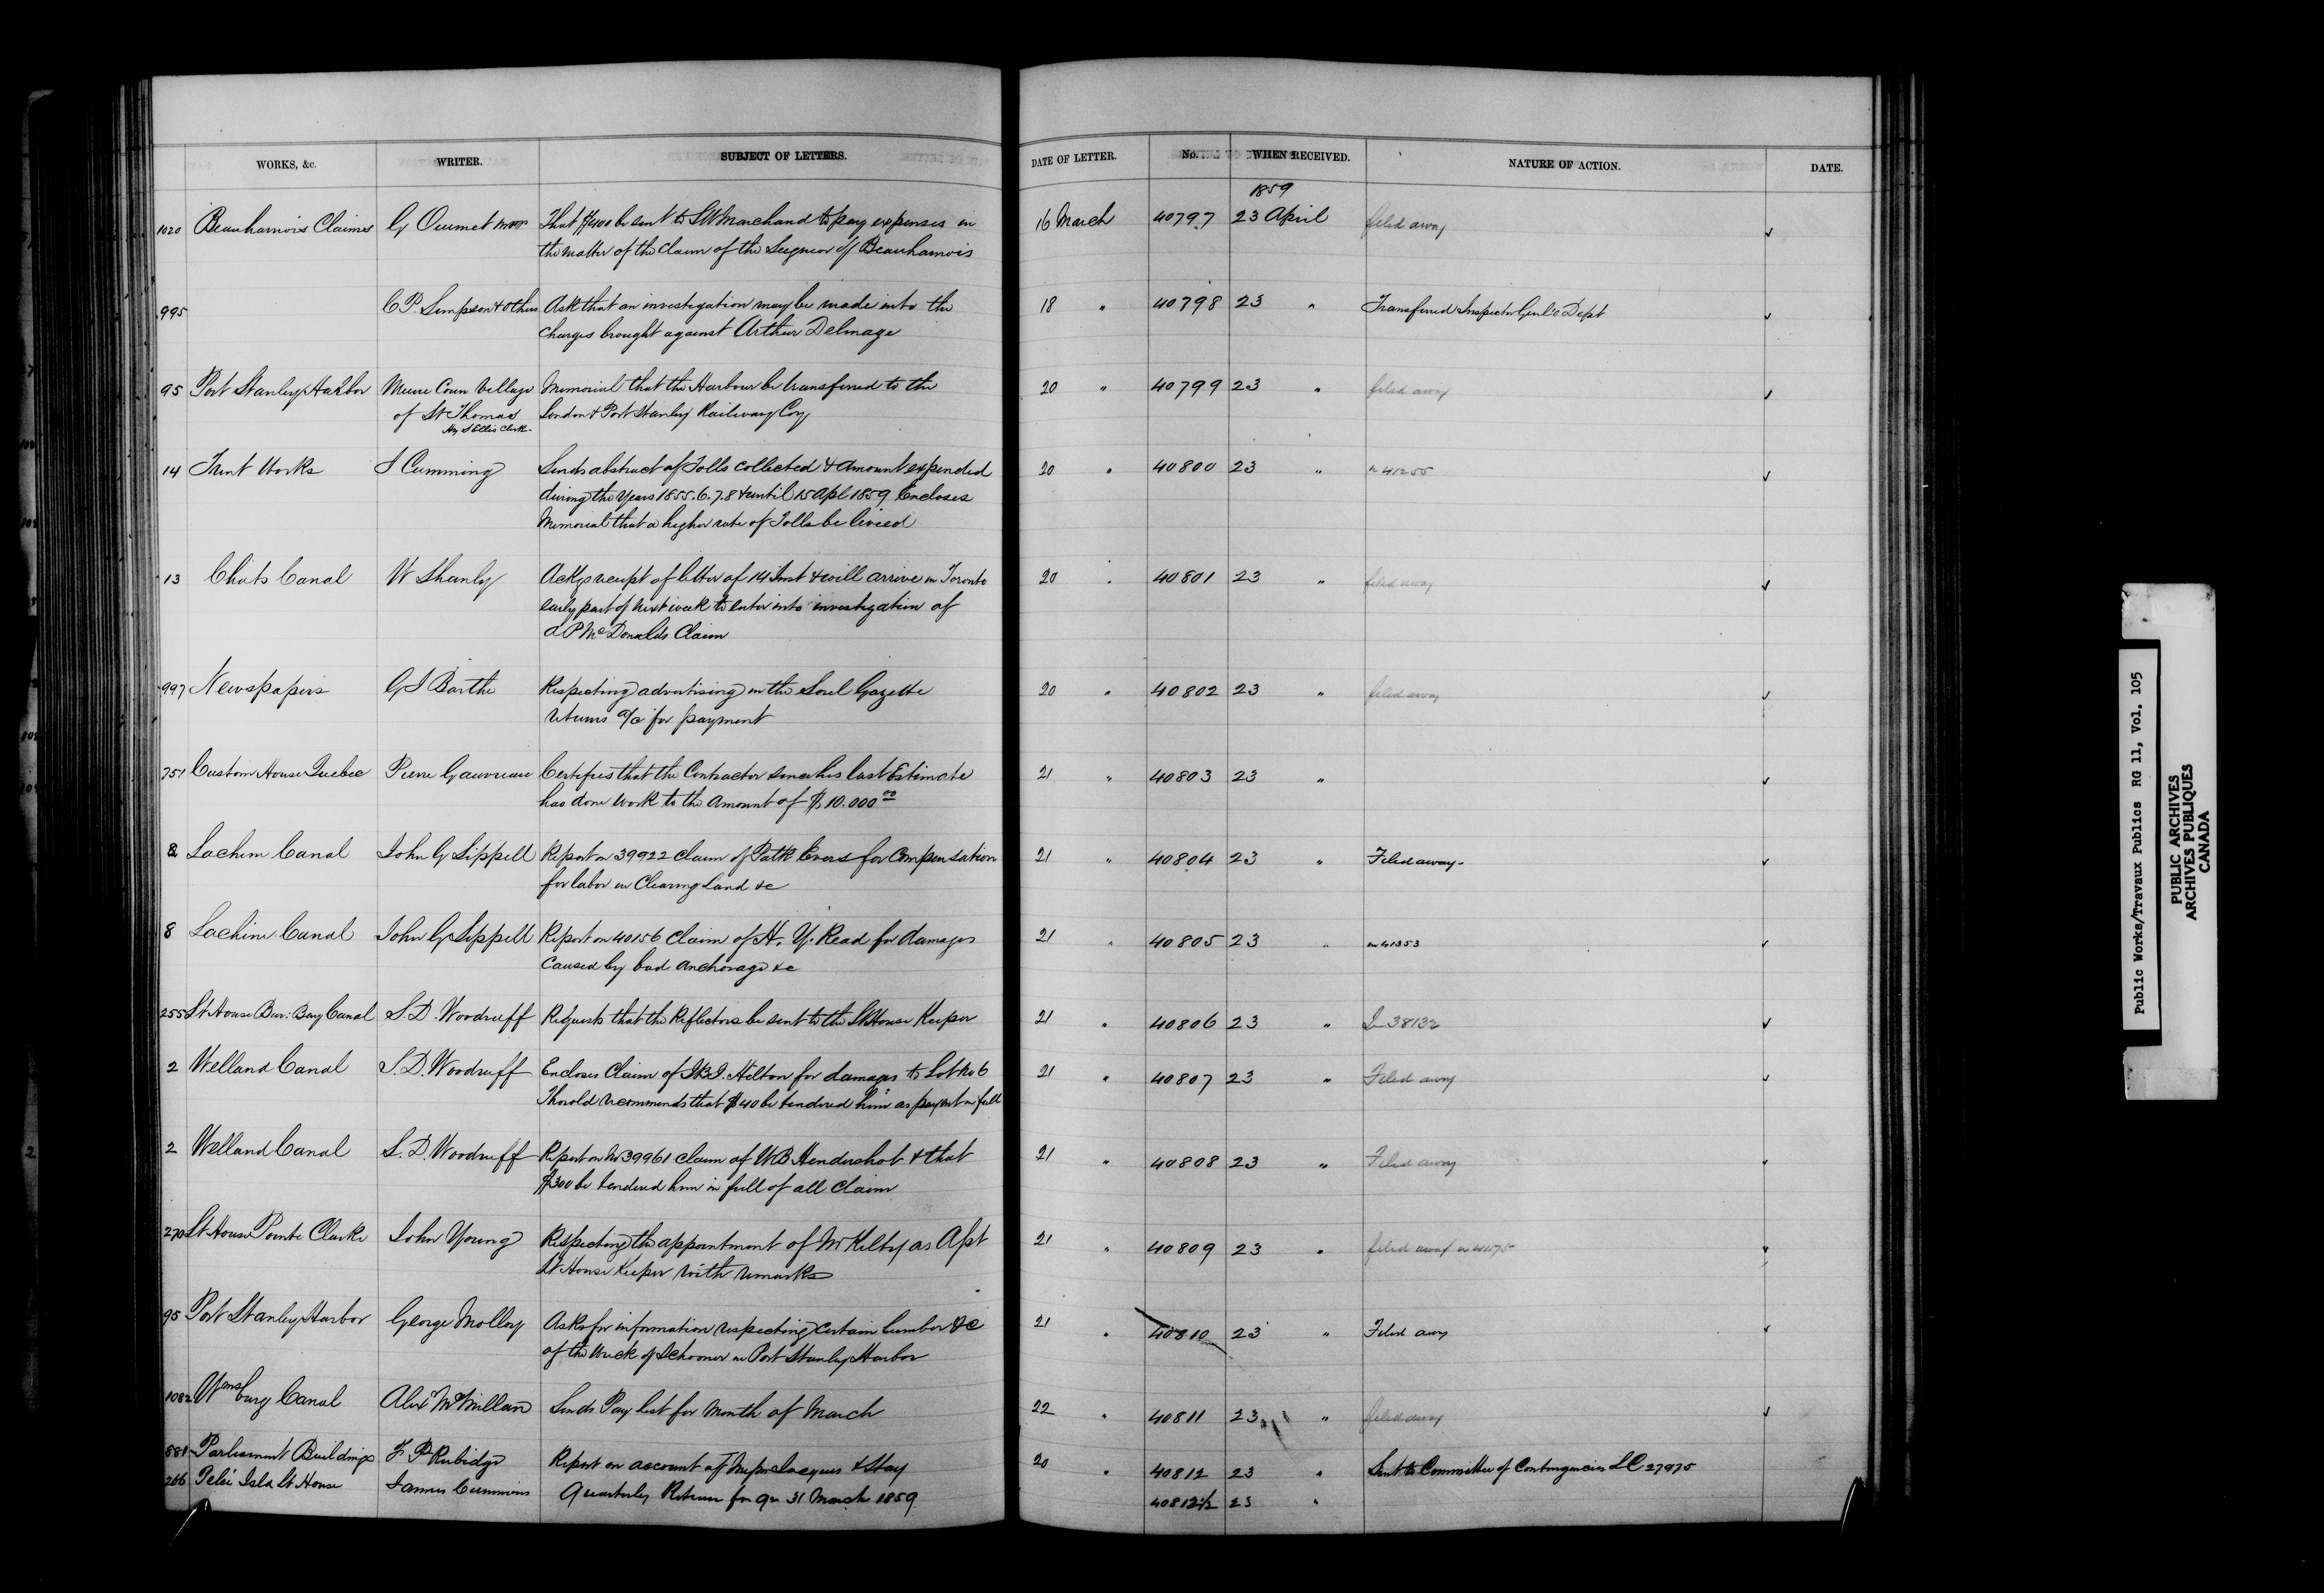 WORKS, &c. WRITER. SUBJECT OF LETTERS. DATE OF LETTER. No. WHEN RECEIVED. NATURE OF ACTION. DATE.
1859
1020 Beauharnois Claims G Ouimet That $400 be sent to L W Marchand to pay expenses in 16 March 40797 23 April filed away
the matter of the Claim of the Seignior of Beauharnois
995 C P. Simpson & Others Ask that an investigation may be made into the 18 " 40798 23 " Transferred Inspector Genl's Dept
Charges brought against Arthur Delmage
95 Port Stanley Harbor Coun Village Memorial that the Harbour be transferred to the 20 " 40799 23 " filed away
of St Thomas London & Port Stanley Railway Coy
Ellis Clerk
14 Trent Works J Cumming Sends abstract of Tolls collected & amount expended 20 " 40800 23 " in 41255
during the Years 1855. 6. 7. 8 & until 15 Apl 1859 Encloses
Memorial that a higher rate of Tolls be levied
13 Chats Canal W Shanly Ackgs receipt of letter of 14 Inst & will arrive in Toronto 20 " 40801 23 " filed away
early part of next week to enter into investigation of
A P McDonalds Claim
997 Newspapers G I Barthe Respecting advertising in the Sorel Gazette 20 " 40802 23 " filed away
returns a/c for payment
751 Custom House Quebec Pierre Gauvreau Certifies that the Contractor since his last Estimate 21 " 40803 23 "
has done work to the amount of $10.000 00
8 Lachine Canal John G Sippell Report on 39922 claim of Patk Evers for Compensation 21 " 40804 23 " Filed away
for labor in Clearing land &c
8 Lachine Canal John G Sippell Report on 40156 Claim of H. Y. Read for damages 21 " 40805 23 " in 41353
Caused by bad anchorage &c
255 Lt House Bur: Bay Canal S. D. Woodruff Requests that the Reflectors be sent to the Lt House Keeper 21 " 40806 23 " 38132
2 Welland Canal S. D. Woodruff Encloses Claim of Hilton for damages to Lot No 6 21 " 40807 23 " Filed away
Thorold recommends that $40 be tendered him as payment in full
2 Welland Canal S. D. Woodruff Report on No 39961 claim of W B Hendershot & that 21 " 40808 23 " Filed away
$300 be tendered him in full of all Claim
270 Lt House Pointe Clarke John Young Respecting the appointment of Mr Kilty as Apt 21 " 40809 23 " filed away
Lt House Keeper with remarks
95 Port Stanley Harbor George Molloy Asks for information respecting certain lumber &c 21 " 40810 23 " Filed away
of the Wreck of Schooner in Port Stanley Harbor
1082 Wmsburg Canal Alex McMillan Sends Pay list for Month of March 22 " 40811 23 " filed away
881 Parliament Buildings F P Rubidge Report on account of Messrs Jacques & Hay 20 " 40812 23 " Sent to Committee of Contingencies LC 27975
266 Pelei Isld Lt House James Cummins Quarterly Return for Qr 31 March 1859 40812½ 23 "
Public Works/Travaux Publics RG 11, Vol. 105
PUBLIC ARCHIVES
ARCHIVES PUBLIQUES
CANADA